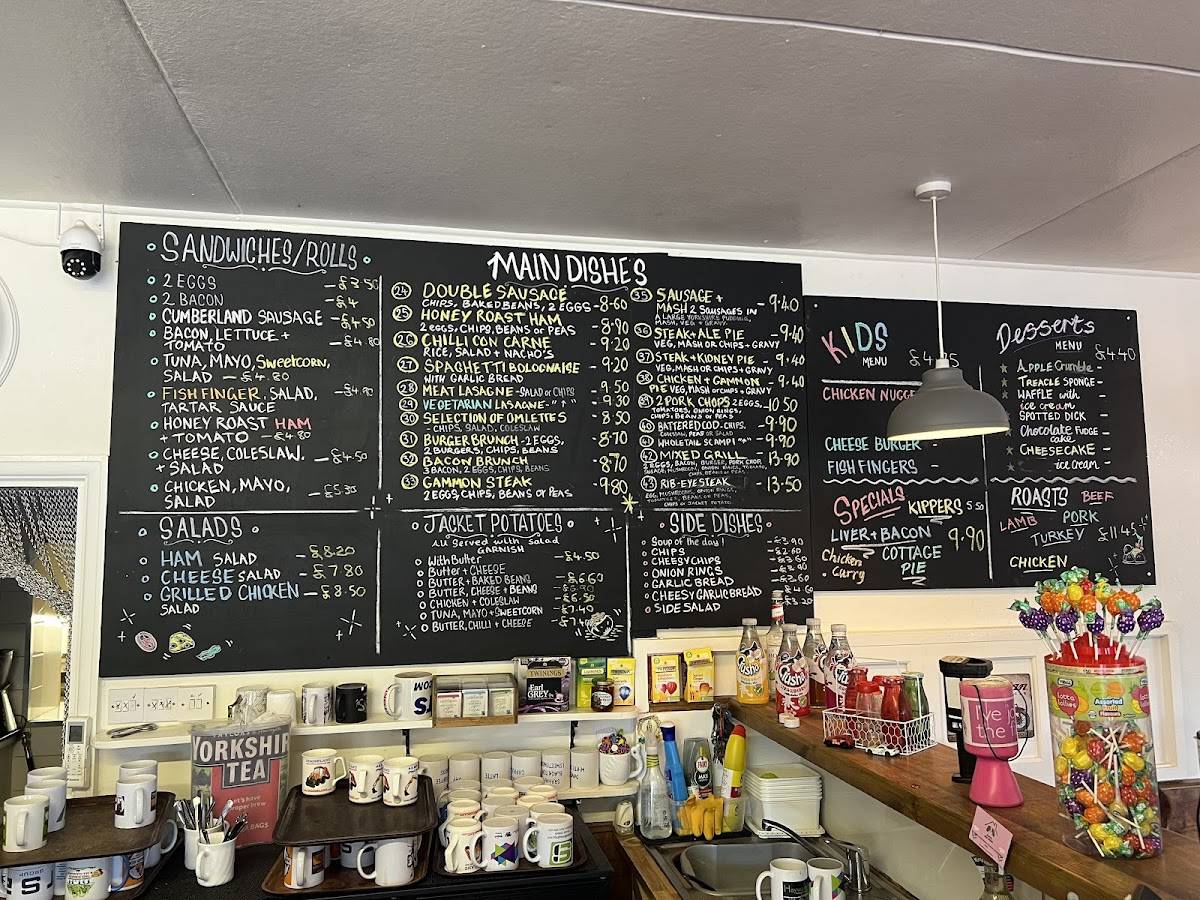 SANDWICHES/ROLLS
2 EGGS - £3.50
2 BACON - £4
CUMBERLAND SAUSAGE - £4.50
BACON, LETTUCE +
TOMATO - £4.80
TUNA, MAYO, Sweetcorn,
SALAD - £4.80
FISH FINGER, SALAD,
TARTAR SAUCE
HONEY ROAST HAM
+ TOMATO - £4.80
CHEESE, COLESLAW,
+ SALAD - £4.50
CHICKEN, MAYO,
SALAD
SALADS
HAM SALAD - £8.20
CHEESE SALAD - £7.80
GRILLED CHICKEN - £8.50
SALAD
MAIN DISHES
24 DOUBLE SAUSAGE
CHIPS, BAKED BEANS, 2 EGGS - 8.60
25 HONEY ROAST HAM
2 EGGS, CHIPS, BEANS OR PEAS - 8.90
26 CHILLI CON CARNE
RICE, SALAD + NACHO'S - 9.20
27 SPAGHETTI BOLOGNAISE
WITH GARLIC BREAD - 9.20
28 MEAT LASAGNE - SALAD OR CHIPS - 9.50
29 VEGETARIAN LASAGNE - " " - 9.30
30 SELECTION OF OMLETTES
- CHIPS, SALAD, COLESLAW - 8.50
31 BURGER BRUNCH - 2 EGGS,
2 BURGERS, CHIPS, BEANS - 8.70
32 BACON BRUNCH
3 BACON, 2 EGGS, CHIPS, BEANS - 8.70
33 GAMMON STEAK
2 EGGS, CHIPS, BEANS OR PEAS - 9.80
35 SAUSAGE +
MASH 2 SAUSAGES IN - 9.40
A LARGE YORKSHIRE PUDDING,
MASH, VEG + GRAVY
36 STEAK + ALE PIE - 9.40
VEG, MASH OR CHIPS + GRAVY
37 STEAK + KIDNEY PIE - 9.40
VEG, MASH OR CHIPS + GRAVY
38 CHICKEN + GAMMON - 9.40
PIE VEG, MASH OR CHIPS + GRAVY
39 2 PORK CHOPS 2 EGGS, - 10.50
TOMATOES, ONION RINGS,
CHIPS, BEANS OR PEAS
40 BATTERED COD - CHIPS, - 9.90
COLESLAW, PEAS OR SALAD
41 WHOLETAIL SCAMPI " " - 9.90
42 MIXED GRILL - 13.90
2 EGGS, BACON, BURGER, PORK CHOP,
SAUSAGE, MUSHROOM, ONION RINGS, TOMATO,
CHIPS, BEANS OR PEAS
43 RIB-EYE STEAK - 13.50
EGG, MUSHROOMS, ONION RINGS,
TOMATOES, BEANS OR PEAS,
CHIPS OR JACKET POTATO
JACKET POTATOES
all Served with Salad
GARNISH
With Butter - £4.50
BUTTER + CHEESE
BUTTER + BAKED BEANS - £6.60
BUTTER, CHEESE + BEANS
CHICKEN + COLESLAW - £6.50
TUNA, MAYO + SWEETCORN - £7.40
BUTTER, CHILLI + CHEESE
SIDE DISHES
Soup of the day! - £3.90
CHIPS - £2.60
CHEESY CHIPS - £3.60
ONION RINGS
GARLIC BREAD - £3.60
CHEESY GARLIC BREAD - £4.60
SIDE SALAD - £3.20
KIDS
MENU
CHICKEN
CHEESE BURGER
FISH FINGERS -
SPECIALS
KIPPERS 5.50
LIVER + BACON
9.90
Chicken
Curry
COTTAGE
PIE
Desserts
MENU £4.40
APPLE Crumble -
TREACLE SPONGE -
WAFFLE with
ice cream -
SPOTTED DICK -
Chocolate FUDGE
cake -
CHEESECAKE -
ice cream -
ROASTS BEEF
LAMB PORK
TURKEY £11.45
CHICKEN
YORKSHIRE
TEA
BAGS
TWININGS
Earl
GREY
Vimto
lollies
I've
the